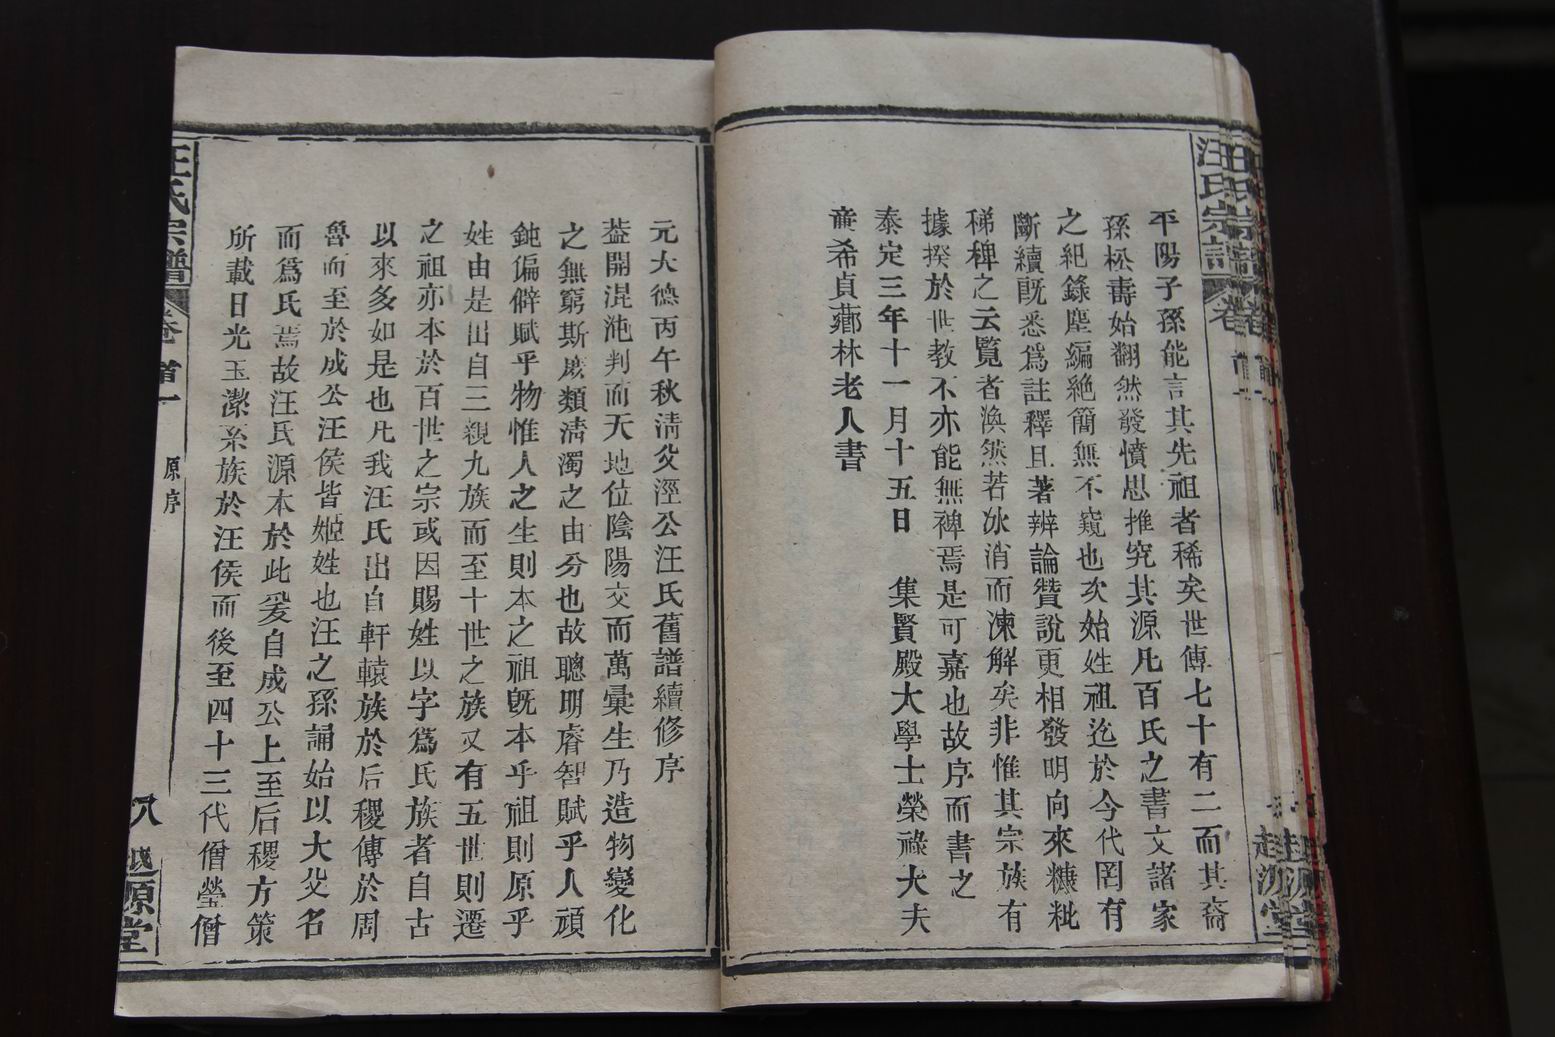 平陽子孫能言其先祖者稀矣世傳七十有二而其裔
孫松壽始翻然發憤思推究其源凡百氏之書文諸家
之紀錄塵編絶簡無不窺也次始姓祖迄於今代罔有
斷續旣悉爲註釋且著辨論贊說更相發明向來糠粃
稊稗之云覽者渙然若冰消而凍解矣非惟其宗族有
據揆於世教不亦能無裨焉是可嘉也故序而書之
泰定三年十一月十五日 集賢殿大學士榮祿大夫
希貞薌林老人書
元大德丙午秋淸父涇公汪氏舊譜續修序
葢開混沌判而天地位陰陽交而萬彙生乃造物變化
之無窮斯庻類淸濁之由分也故聰明睿智賦乎人頑
鈍偏僻賦乎物惟人之生則本之祖旣本乎祖則原乎
姓由是出自三親九族而至十世之族又有五世則遷
之祖亦本於百世之宗或因賜姓以字爲氏族者自古
以來多如是也凡我汪氏出自軒轅族於后稷傳於周
魯而至於成公汪侯皆姬姓也汪之孫誦始以大父名
而爲氏焉故汪氏源本於此爰自成公上至后稷方策
所載日光玉潔系族於汪侯而後至四十三代僧瑩僧
汪氏宗譜 卷首一 原序 八 越原堂
汪氏宗譜 卷首一